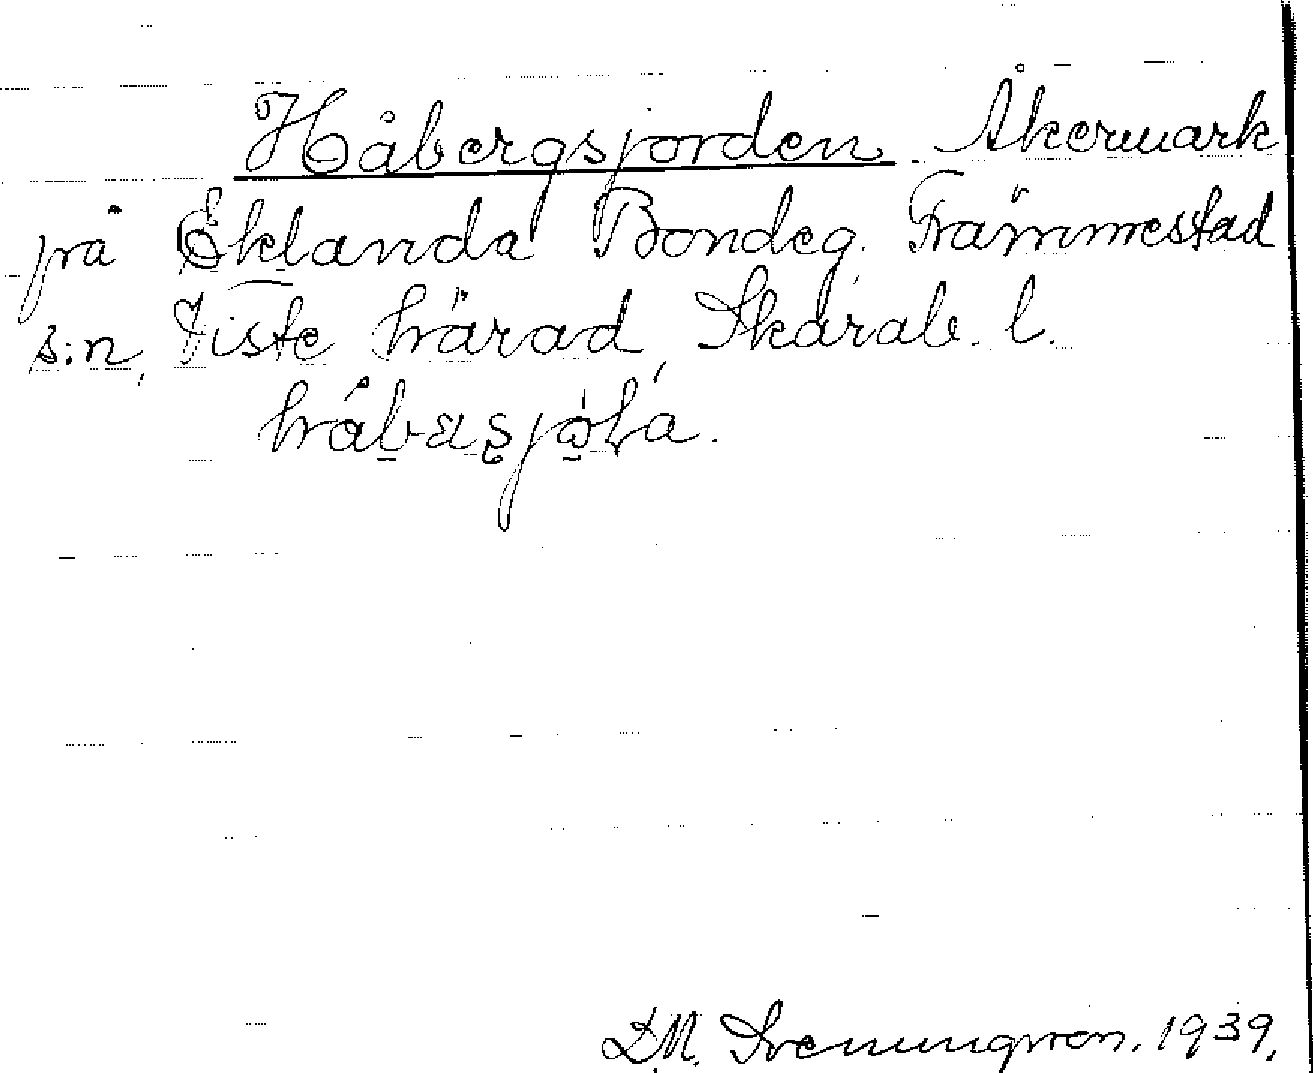 Håbergsjorden Åkermark
på Eklanda Bondeg. Främmestad
s:n, Viste härad, Skarab. l.
D.M. Sveningson. 1939.